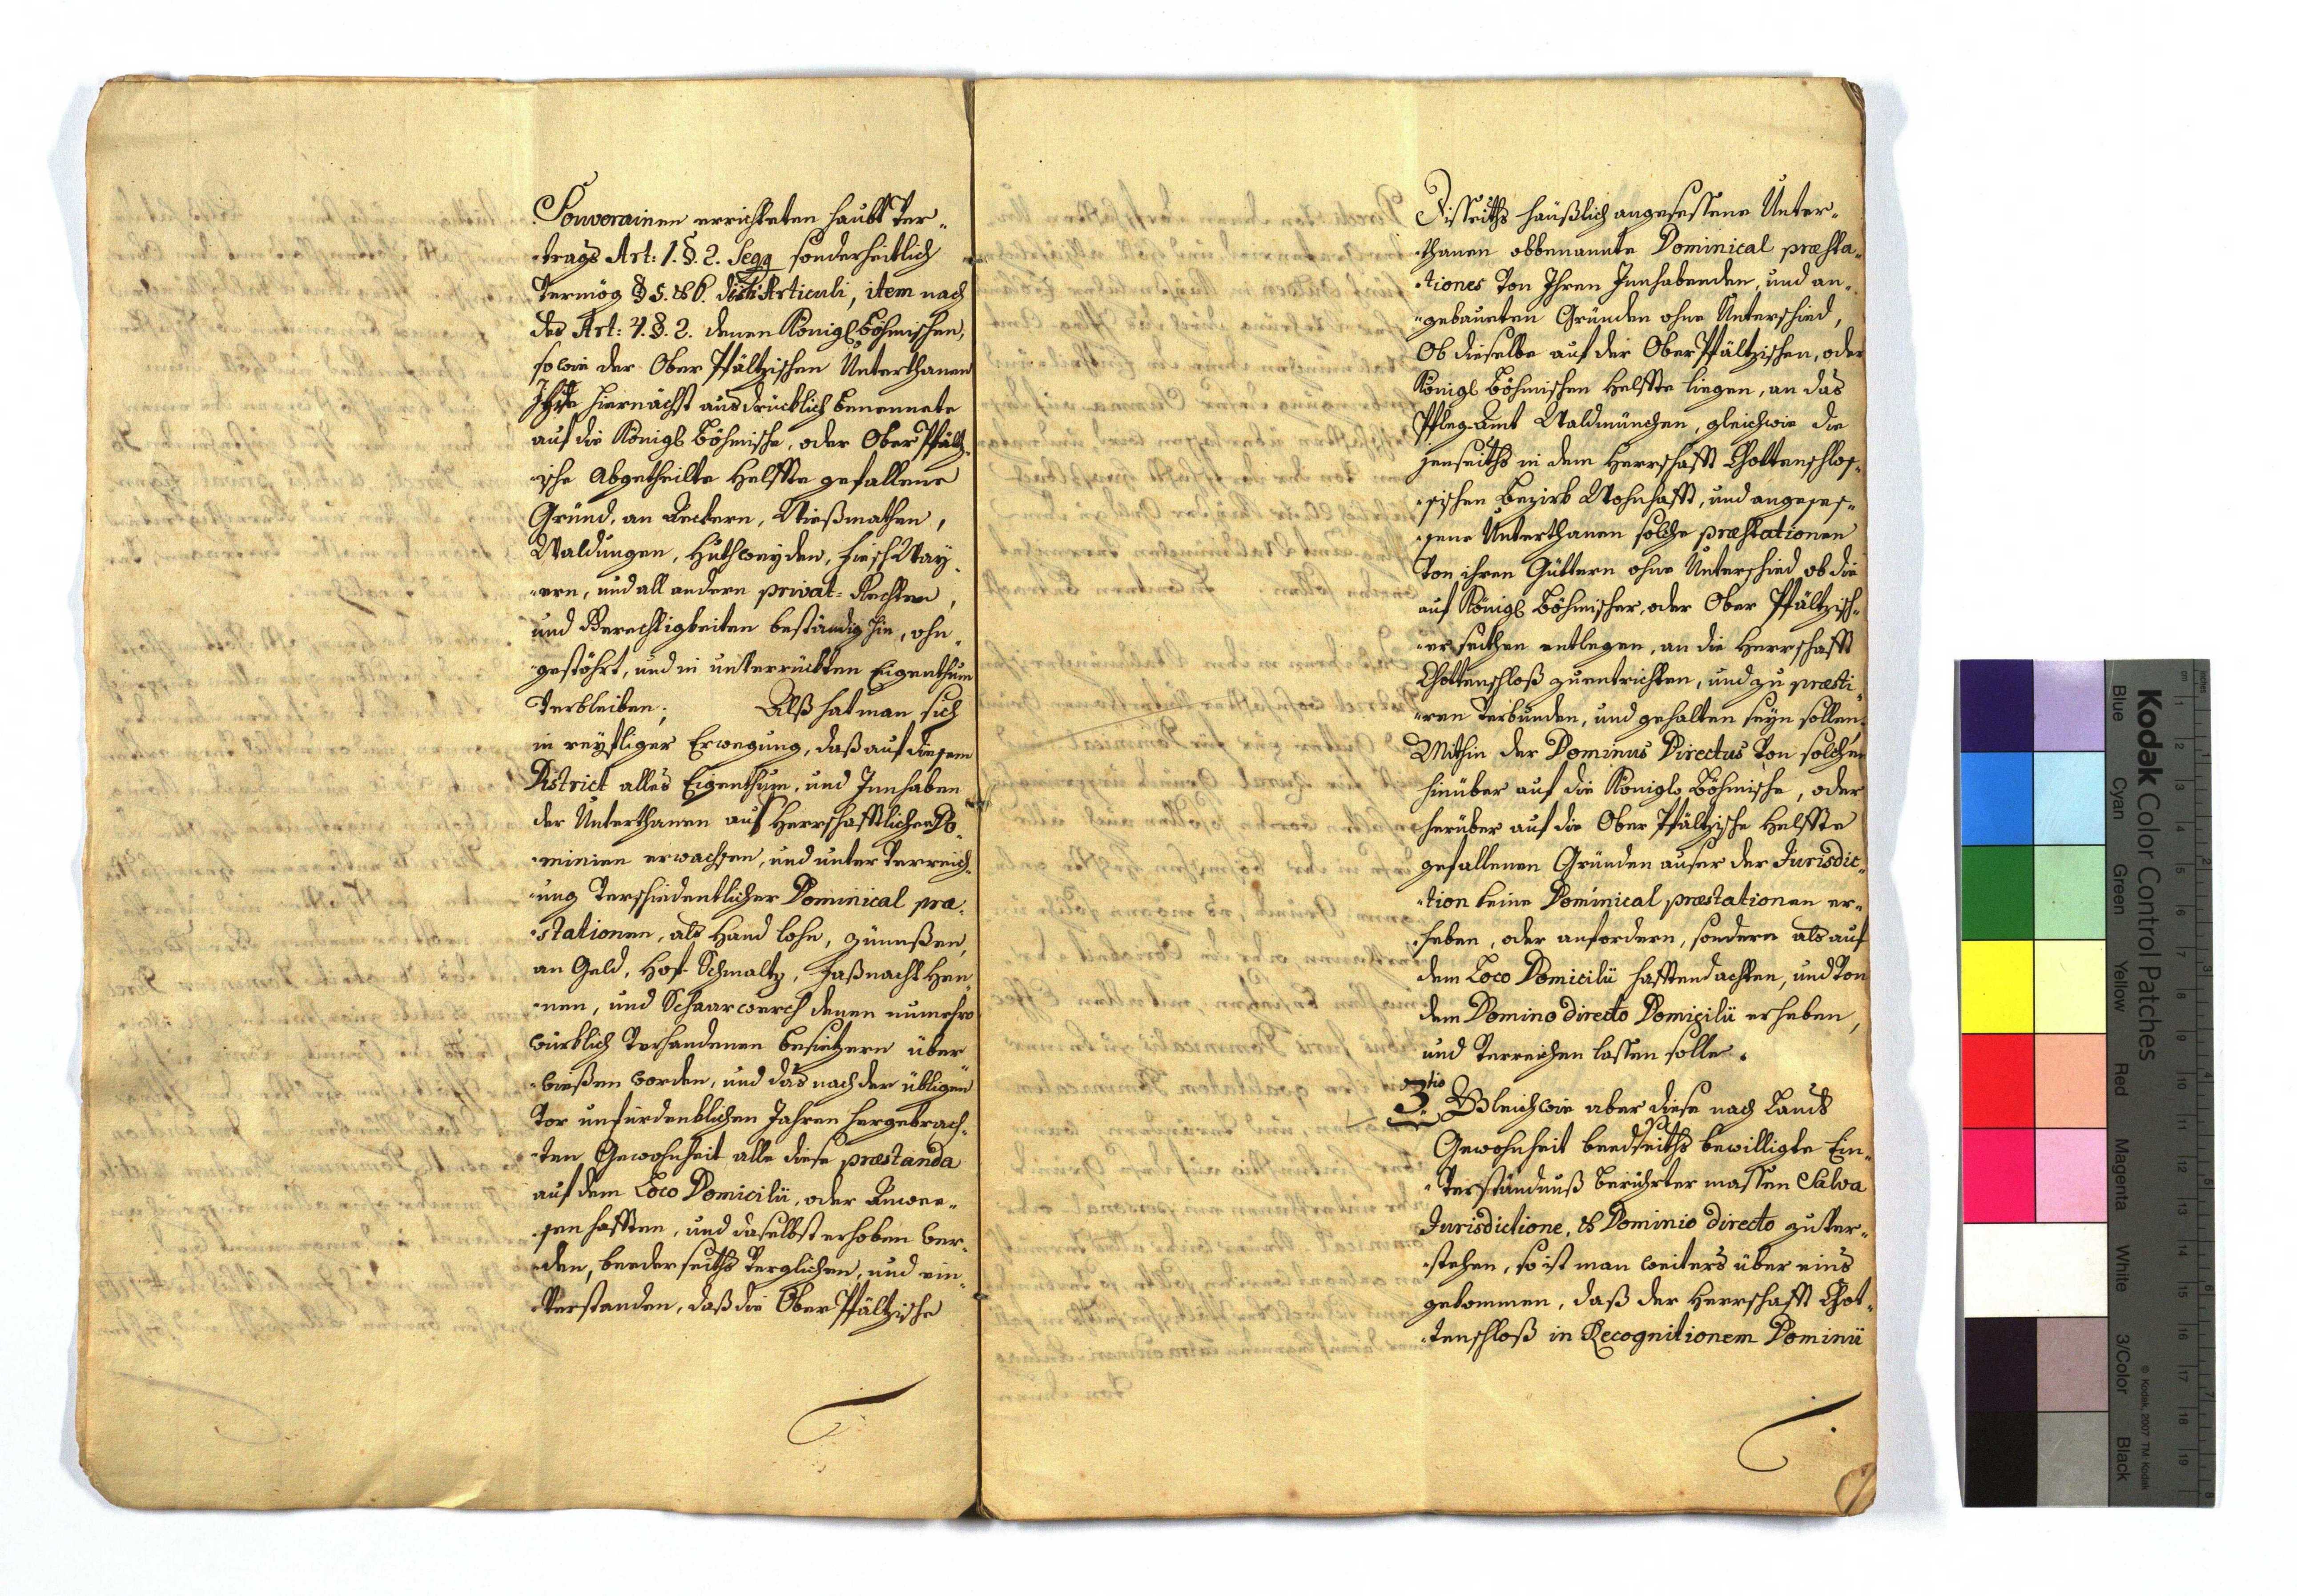 Souverainen errichteten Haubt Ver-
trags Art: 1. §. 2. Seqq sonderheitlich
Vermög § 5. & 6. dicti Articuli, item nach
des Art: 4. §. 2. denen Königl Böhmischen,
so wie der Ober Pfältzischen Unterthanen
Ihre hiernächst ausdrücklich benennete
auf die Königl Böhmische, oder Ober Pfältz-
ische abgetheilte Helffte gefallene
Gründ, an Äeckern, Wießmathen,
Waldungen, Huthweyden, FischWay-
ern, und all andern privat-Rechten,
und Gerechtigkeiten beständig hin, ohn-
gestöhrt, und in unverrückten Eigenthum
Verbleiben; Alß hat man sich
in reyfliger Erwegung, daß auf diesem
District alles Eigenthum, und Innhaben
der Unterthanen auß Herrschafftlichen Do-
minien erwachsen, und unter Verreich-
ung Verschiedentlicher Dominical præ-
stationen, als Hand lohn, Zünnßen,
an Geld, Hof-Schmaltz, Faßnacht Hen-
nen, und Schaarwerch denen nunmehro
würcklich Vorhandenen Besitzern über-
wießen worden, und das nach der übligen
Vor unfürdencklichen Jahren hergebrach-
ten Gewohnheit alle diese præstanda
auf dem Loco Domicilii, oder Anwee-
sen hafften, und daselbst erhoben wer-
den, beederseiths Verglichen, und ein-
Verstanden, daß die Ober Pfältzische
Disseiths häußlich angesessene Unter-
thanen obbenannte Dominical præsta-
tiones Von Ihren Innhabenden, und an-
gebaueten Gründen ohne Unterschied,
Ob dieselbe auf der Ober Pfältzischen, oder
Königl Böhmischen Helffte liegen, an das
Pfleg-Amt Waldmünchen, gleichwie die
jenseiths in dem Herrschafft Chottenschlos-
sischen Bezirk Wohnhafft, und angeses-
sene Unterthanen solche præstationen
Von ihren Güttern ohne Unterschied ob die
auf Königl Böhmischer, oder Ober Pfältzisch-
er seithen entlegen, an die Herrschafft
Chottenschloß zu entrichten, und zu præsti-
ren Verbunden, und gehalten seyn sollen.
Mithin der Dominus Directus Von solchen
hinüber auf die Königl Böhmische, oder
herüber auf die Ober Pfältzische Helffte
gefallenen Gründen auser der Jurisdic-
tion keine Dominical præstationen er-
heben, oder anfordern, sondern als auf
dem Loco Domicilii hafftend achten, und Von
dem Domino directo Domicilii erheben,
und Verreichen lassen solle.
3tio Gleichwie aber diese nach Lands
Gewohnheit beedseiths bewilligte Ein-
Verständnuß berührter massen Salva
Jurisdictione, & Dominio directo zu Ver-
stehen, so ist man weiters über eins
gekommen, daß der Herrschafft Chot-
tenschloß in Recognitionem Dominii
Kodak Color Control Patches
Blue Cyan Green Yellow Red Magenta White 3/Color Black
© Kodak, 2007 TM: Kodak